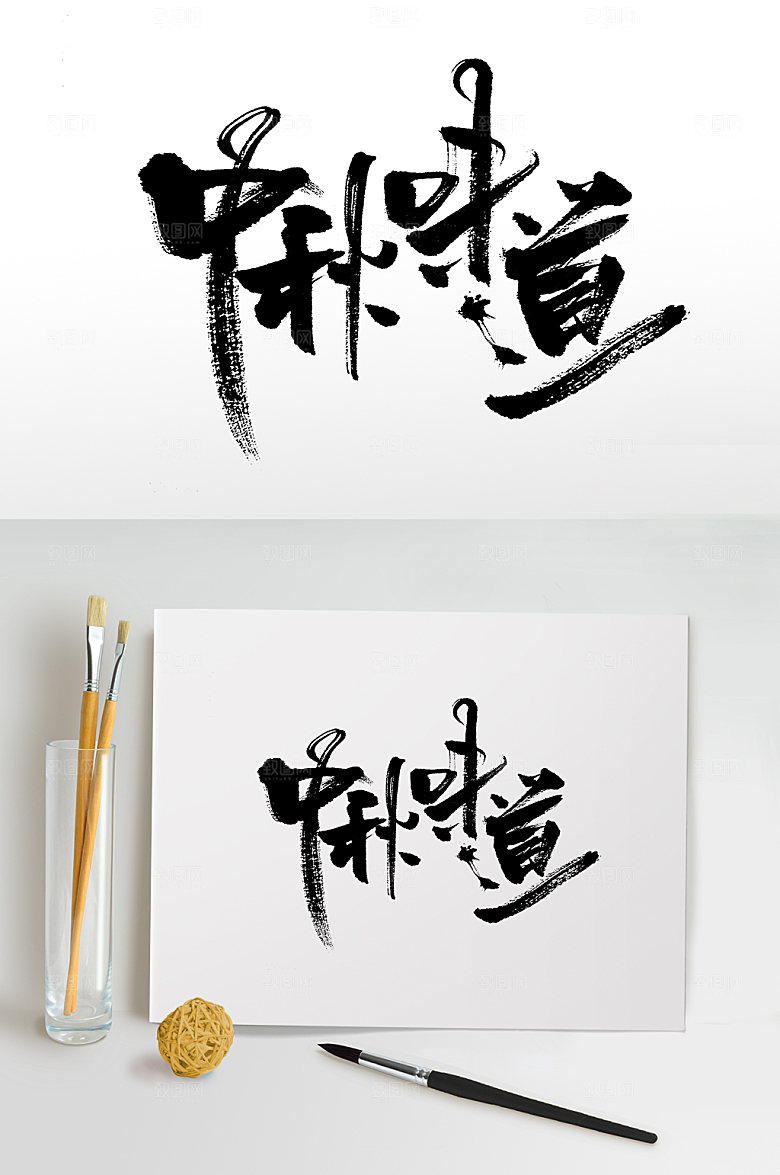 中秋味道
中秋味道